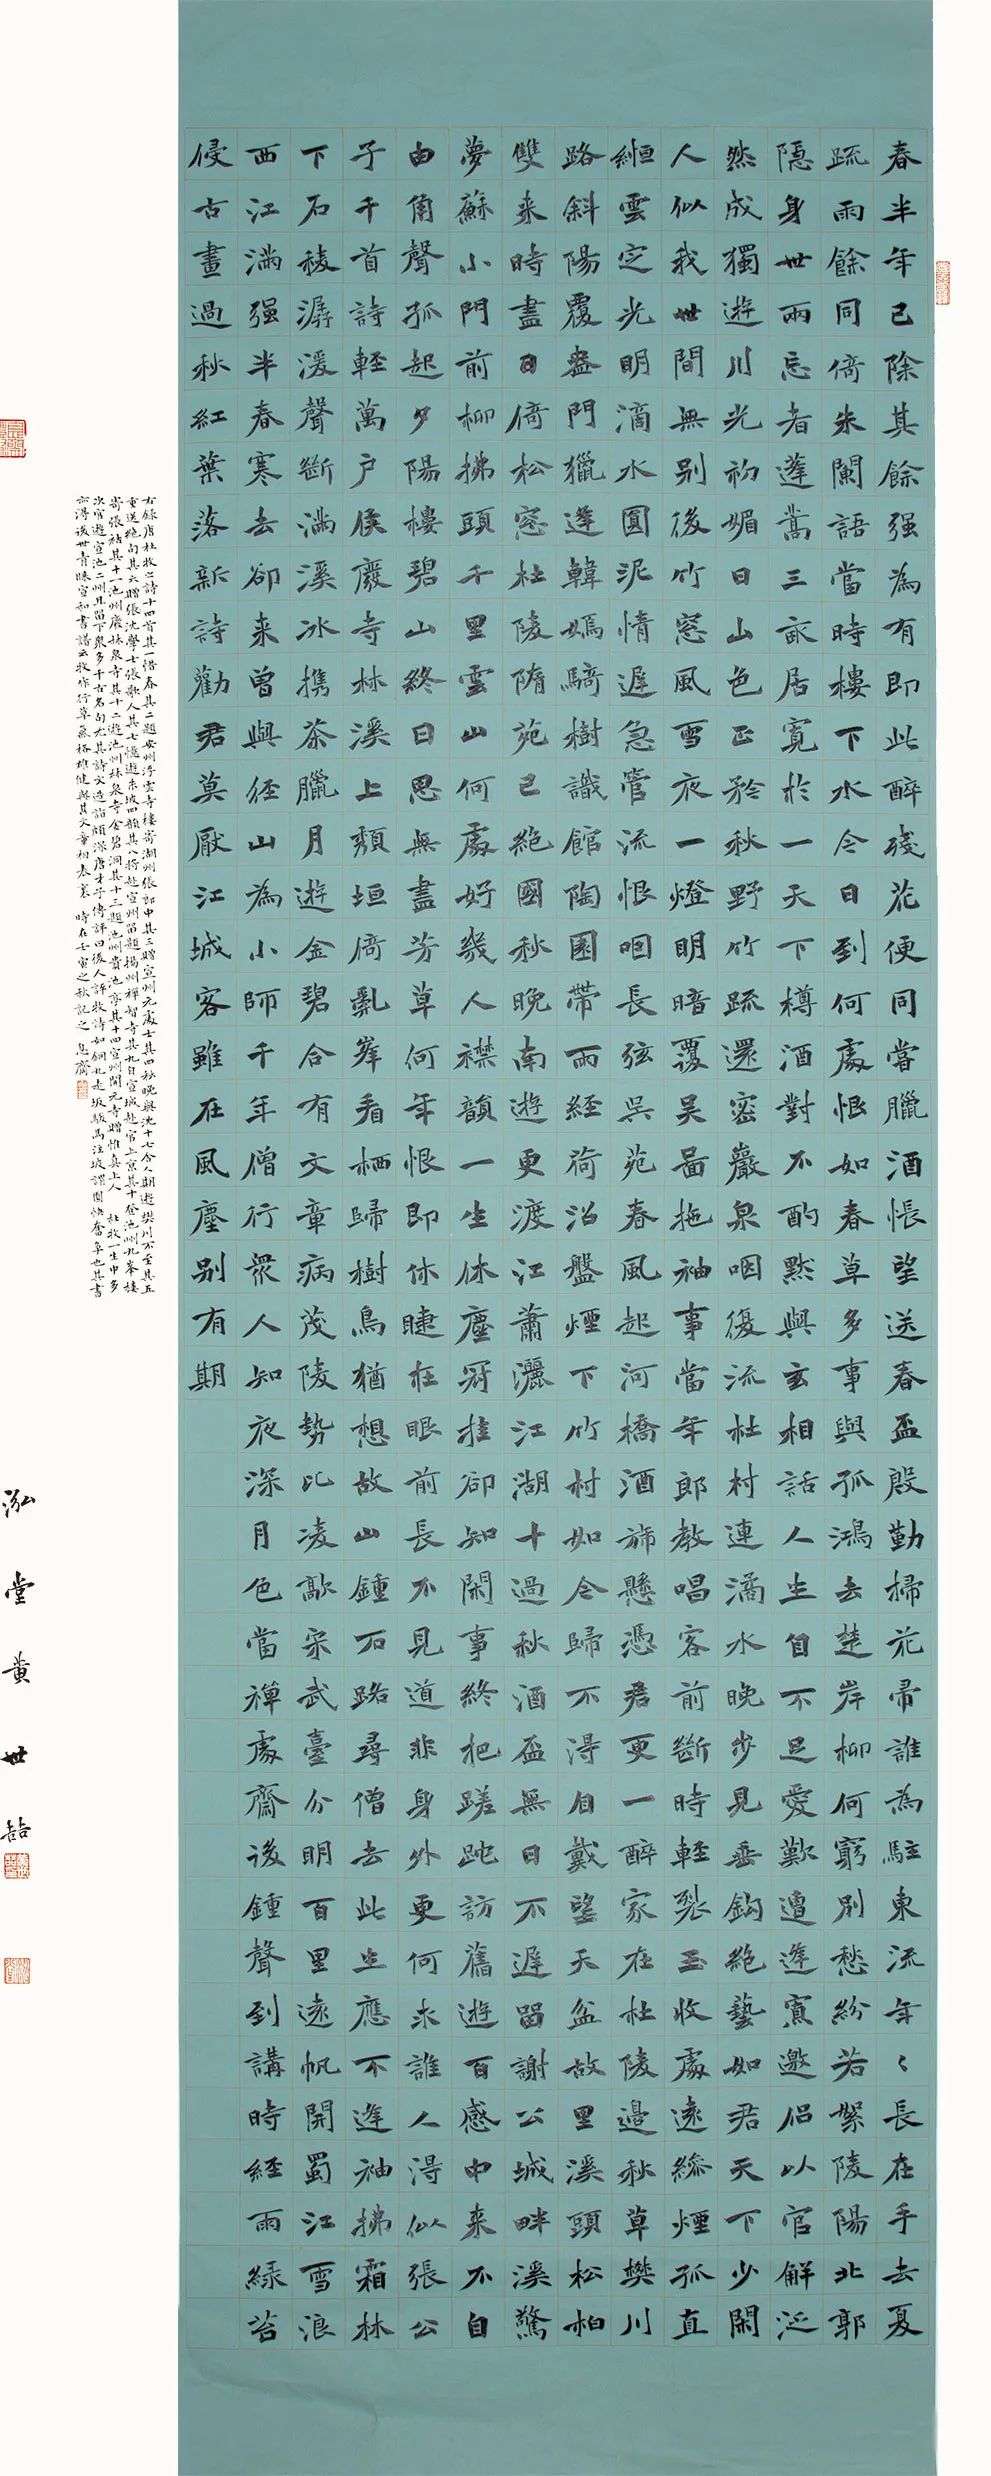 春半年已除其餘强為有即此醉殘花便同嘗臘酒悵望送春盃殷勤掃花帚誰為駐東流年〻長在手去夏
疏雨餘同倚朱闌語當時樓下水今日到何處恨如春草多事與孤鴻去楚岸柳何窮別愁紛若絮陵陽北郭
隱身世兩忘者蓬蒿三畝居寬於一天下樽酒對不酌默與玄相話人生自不足愛歎遭逢寡邀侶以官解泛
然成獨遊川光初媚日山色正矜秋野竹疏還密巖泉咽復流杜村連潏水晚步見垂鈎絕藝如君天下少閑
人似我世間無別後竹窓風雪夜一燈明暗覆吴啚拖袖事當年郎教唱客前斷時輕裂玉收處遠繰煙孤直
縆雲定光明滴水圓泥情遲急管流恨咽長弦吳苑春風起河橋酒旆懸憑君更一醉家在杜陵邊秋草樊川
路斜陽覆盎門獵逢韓嫣騎樹識館陶園帶雨經荷沼盤煙下竹村如今歸不得自戴望天盆故里溪頭松柏
雙来時盡日倚松窓杜陵隋苑已絕國秋晚南遊更渡江蕭灑江湖十過秋酒盃無日不遲留謝公城畔溪驚
夢蘇小門前柳拂頭千里雲山何處好幾人襟韻一生休塵冠挂卻知閑事終把蹉跎訪舊遊百感中来不自
由角聲孤起夕陽樓碧山終日思無盡芳草何年恨即休睫在眼前長不見道非身外更何求誰人得似張公
子千首詩輕萬户侯廢寺林溪上頹垣倚亂峯看栖歸樹鳥猶想故山鍾石路尋僧去此生應不逢袖拂霜林
下石稜潺湲聲斷滿溪冰携茶臘月遊金碧合有文章病茂陵勢比凌歊宋武臺分明百里遠帆開蜀江雪浪
西江滿强半春寒去卻来曾與徑山為小師千年僧行眾人知夜深月色當禪處齋後鍾聲到講時經雨綠苔
侵古畫過秋紅葉落新詩勸君莫厭江城客雖在風塵別有期
右錄唐杜牧之詩十四首其一惜春其二題安州浮雲寺樓寄湖州張郎中其三贈宣州元處士其四秋晚與沈十七舍人期遊樊川不至其五
重送絕句其六贈張沈學士張歌人其七憶遊朱坡四韻其八將赴宣州留題揚州禪智寺其九自宣城赴官上京其十登池州九峯樓
寄張祜其十一池州廢林泉寺其十二遊池州林泉寺金碧洞其十三題池州貴池亭其十四宣州開元寺贈惟真上人 杜牧一生中多
次官遊宣池二州且留下眾多千古名句尤其詩文造詣頗深唐才子傳評曰後人評牧詩如銅丸走坂駿馬注坡謂圓快奮急也其書
亦得後世青睞宣和書譜云牧作行草氣格雄健與其文章相表裏 時在壬寅之秋記之 息齋
泓堂黄世喆